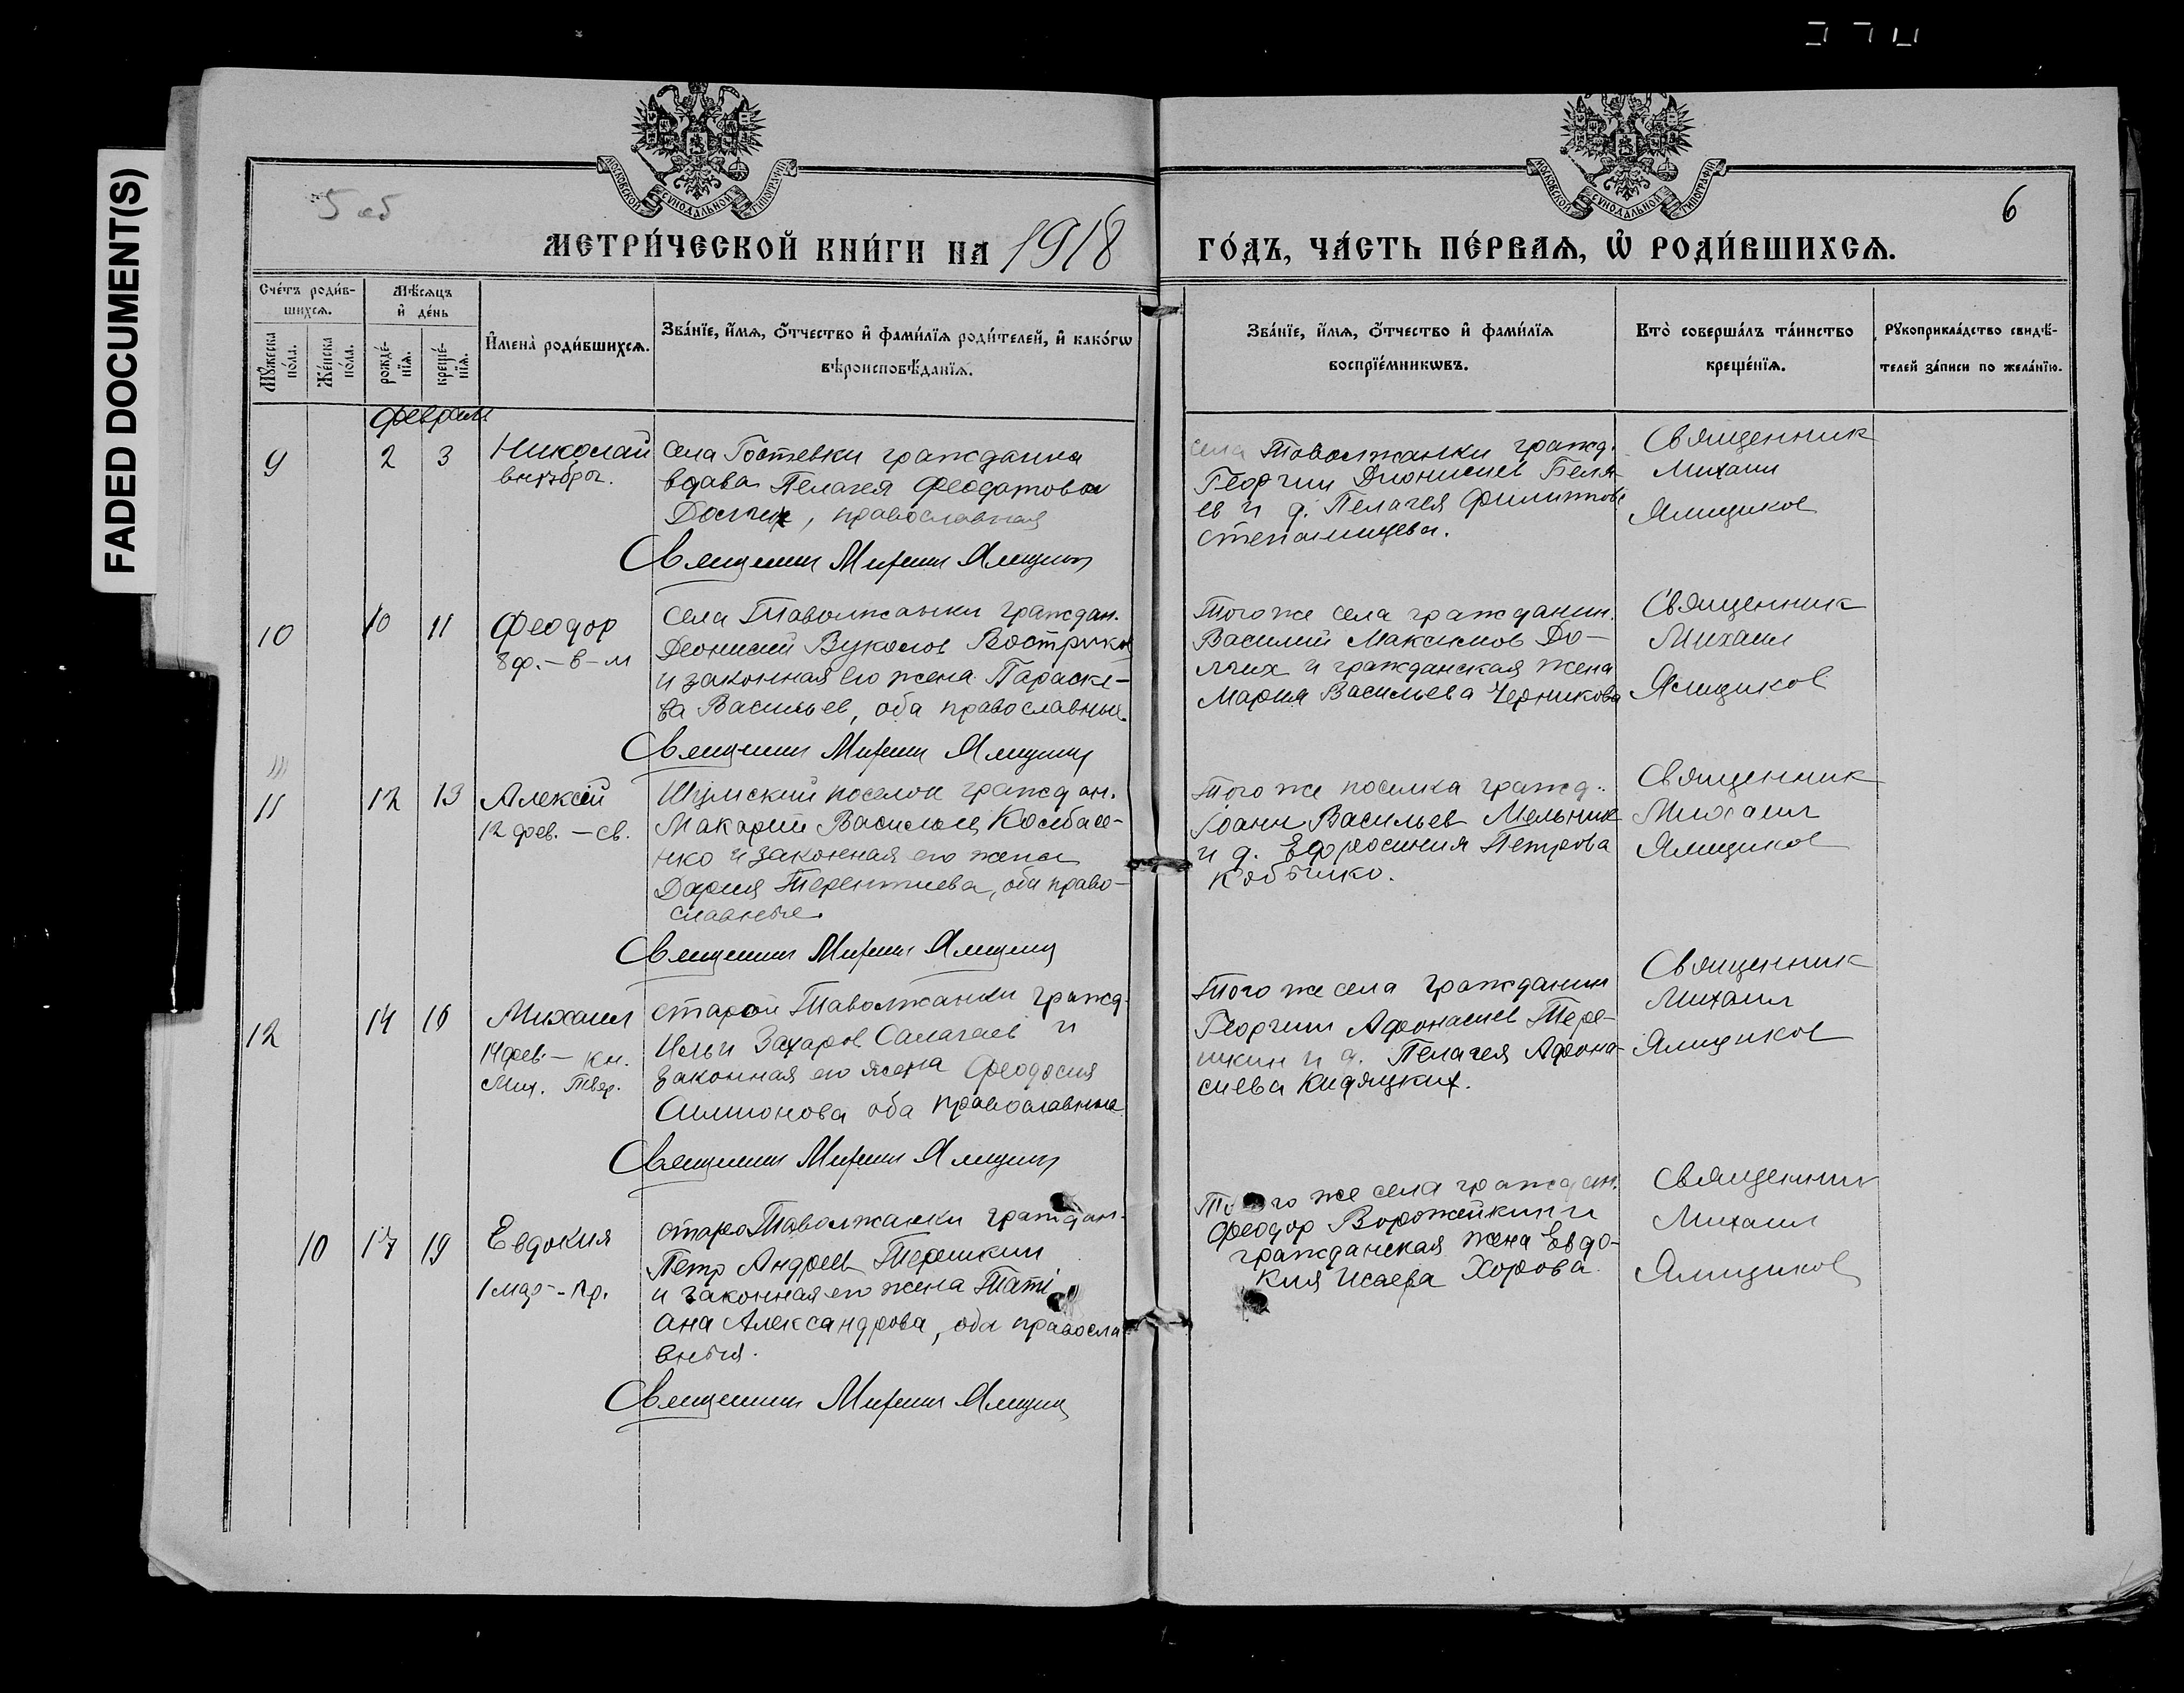 FADED DOCUMENT(S)
5 об
6
МОСКОВСКОЙ СѴНОДАЛЬНОЙ ТИПОГРАФІИ
МОСКОВСКОЙ СѴНОДАЛЬНОЙ ТИПОГРАФІИ
МЕТРИ́ЧЕСКОЙ КНИ́ГИ НА 1918 ГО́ДЪ, ЧА́СТЬ ПЕ́РВАѦ, Ѡ҆ РОДИ́ВШИХСѦ.
Сче́тъ роди́в-
шихсѧ.
Мꙋ́жеска по́ла.
Же́нска по́ла.
Мѣ́сѧцъ
и҆ де́нь
рожде́-
нїѧ.
креще́-
нїѧ.
И҆мена̀ роди́вшихсѧ.
Зва́нїе, и҆́мѧ, ѻ҆́тчество и҆ фами́лїѧ роди́телей, и҆ како́гѡ
вѣроисповѣ́данїѧ.
Зва́нїе, и҆́мѧ, ѻ҆́тчество и҆ фами́лїѧ
воспрїе́мникѡвъ.
Кто̀ соверша́лъ та́инство
креще́нїѧ.
Рꙋкоприкла́дство свидѣ́-
телей за́писи по жела́нїю.
февраль
9 2 3 Николай
внѣбрач.
села Гостевки гражданка
вдова Пелагея Феодотова
Долгих, православная
Священник Михаил Ямщиков
села Таволжанки гражд.
Георгий Дионисиев Беля-
ев и д. Пелагея Филиппова
Степанищева.
Священник
Михаил
Ямщиков
10 10 11 Феодор
8 ф. – в – м
Села Таволжанки граждан.
Дионисий Вуколов Востриков
и законная его жена Параске-
ва Васильев, оба православные.
Священник Михаил Ямщиков
Того же села гражданин.
Василий Максимов До-
лгих и гражданская жена
Мария Васильева Черникова
Священник
Михаил
Ямщиков
11 12 13 Алексей
12 фев. – св.
Шумский поселок граждан.
Макарий Васильев Колбасе-
нко и законная его жена
Дария Терентиева, оба право-
славные.
Священник Михаил Ямщиков
Того же поселка гражд.
Іоанн Васильев Мельник
и д. Ефросиния Петрова
Священник
Михаил
Ямщиков
12 14 16 Михаил
14 фев. – кн.
Мих. Твер.
старой Таволжанки гражд.
Илья Захаров Салагаев и
законная его жена Феодосия
Симионова оба православные
Священник Михаил Ямщиков
Того же села гражданин
Георгий Афонасиев Тере-
шкин и д. Пелагея Афона-
сиева Кидяцких.
Священник
Михаил
Ямщиков
10 17 19 Евдокия
1 мар – пр.
старо Таволжанки граждан.
Петр Андреев Терешкин
и законная его жена Тати
ана Александрова, оба правосла
вныя.
Священник Михаил Ямщиков
Того же села граждан.
Феодор Ворожейкин и
гражданская жена Евдо-
кия Исаева Хорова.
Священник
Михаил
Ямщиков